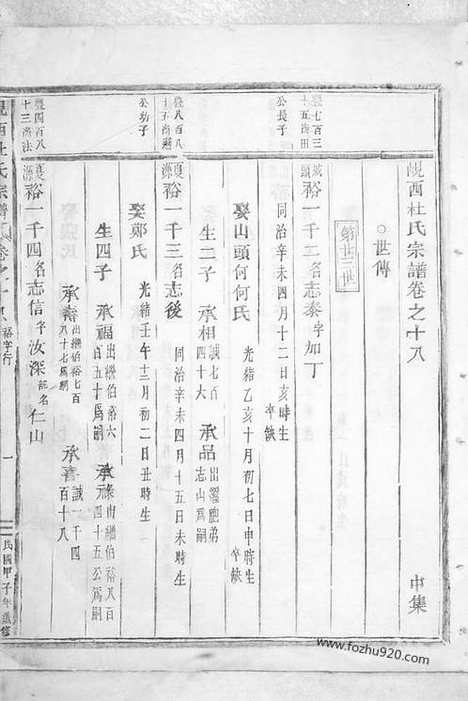 峴西杜氏宗譜卷之十八 中集
○世傳
第世世
豊七百三十五尚田公長子
城頭裕一千二名志泰字加丁
同治辛未四月十二日亥時生
卒缺
娶山頭何何氏
光緒乙亥十月初七日申時生
卒缺
生二子 承相誠七百四十六 承品出繼胞弟志山爲嗣
豊八百八十五尚
夏源裕一千三名志後
同治辛未四月十五日未時生
公幼子
娶鄭氏
光緒壬午十二月初二日丑時生
生四子 承福出繼伯裕六百五十爲嗣 承元條南繼伯裕八百四十五公爲嗣
承壽出繼伯裕七百八十七爲嗣 承喜誠一千四百十八
豊四百八十三尚法
夏源裕一千四名志信字汝深記名仁山
峴西杜氏宗譜 卷之十八 裕字行 一 民國甲子年重修
www.fozhu920.com